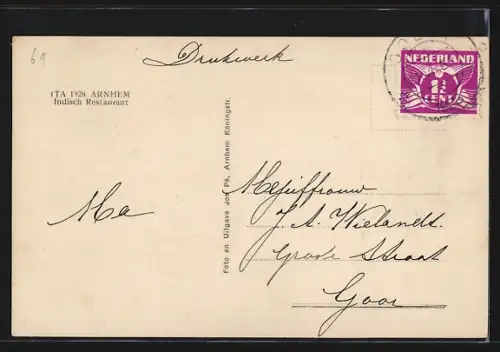 69
Drukwerk
NEDERLAND
1½
CENT
ITA 1928 ARNHEM
Indisch Restaurant
Foto en Uitgave Jos Pé, Arnhem Koningstr.
Ma
Mejuffrouw
J. A. Wielandt.
Groote Straat
Goor